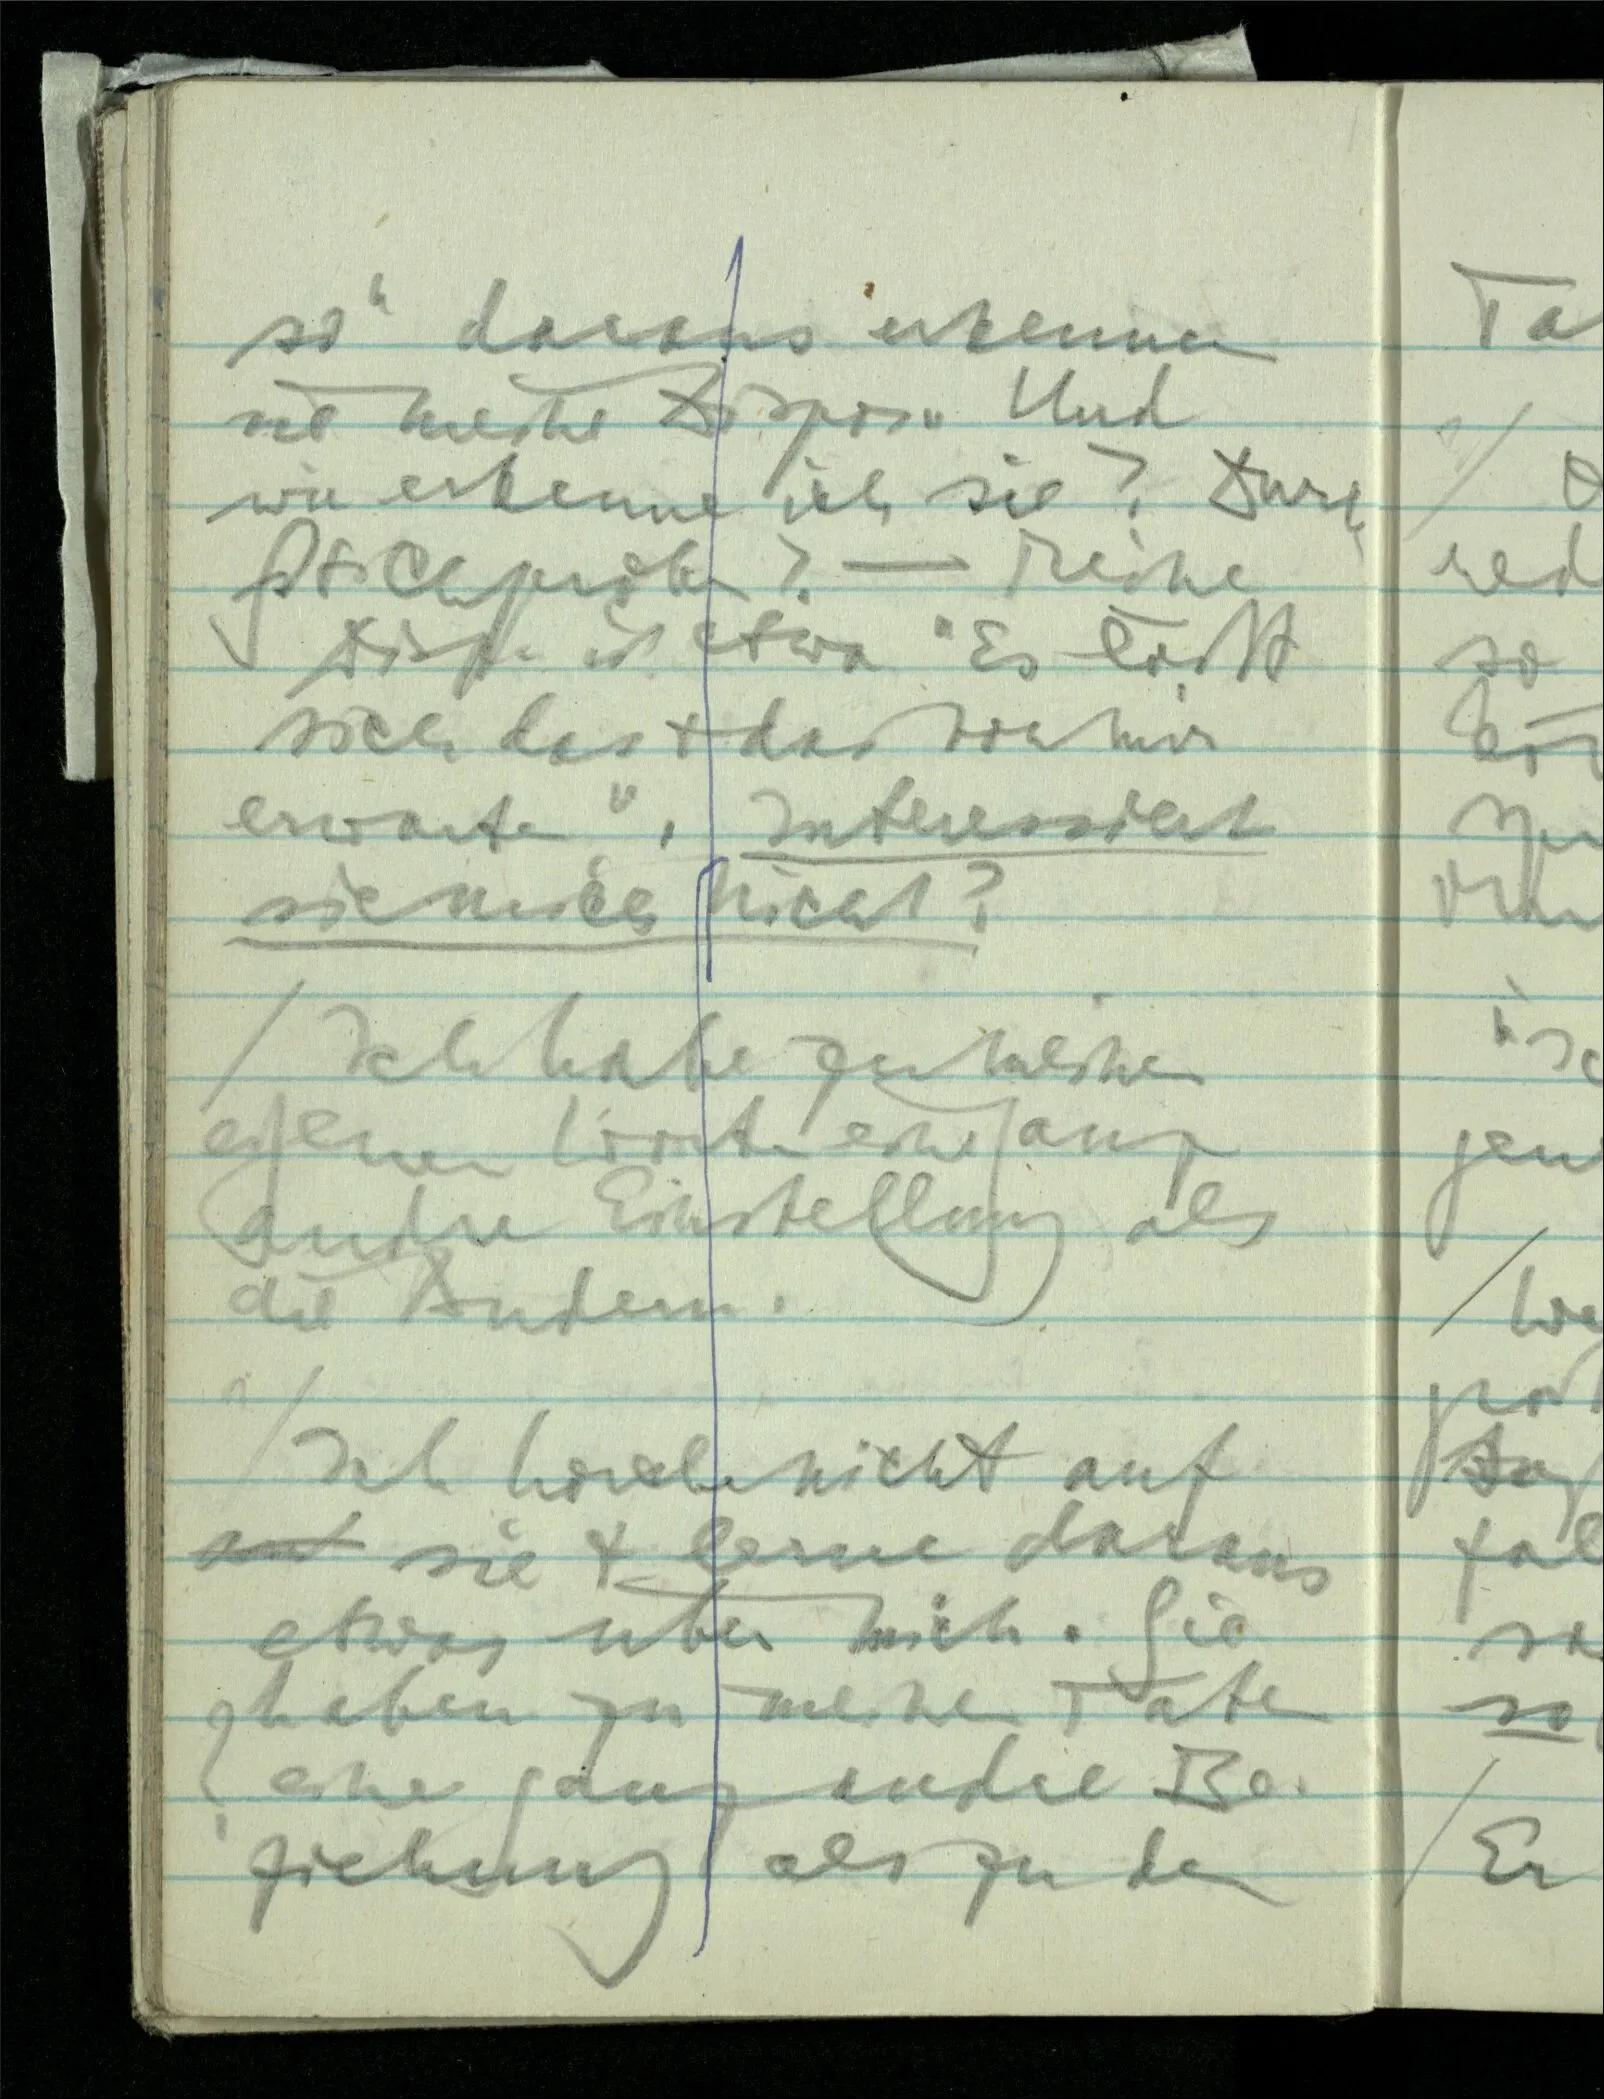 so" daraus erkennen
sie meine Dispos.. Und
wie erkenne ich sie? Durch
Stichproben? — Meine
Disp. ist etwa "Es läßt
sich das + das von mir
erwarten". Interessiert
sie mich nicht?
/ Ich habe zu meinen
eigenen Worten eine ganz
andre Einstellung als
die Andern.
/ Ich horche nicht auf
sie + lerne daraus
etwas über mich. Sie
haben zu meinen Taten
eine ganz andre Be-
ziehung als zu den
Ta
/
red
so
/
/
so
/ Er